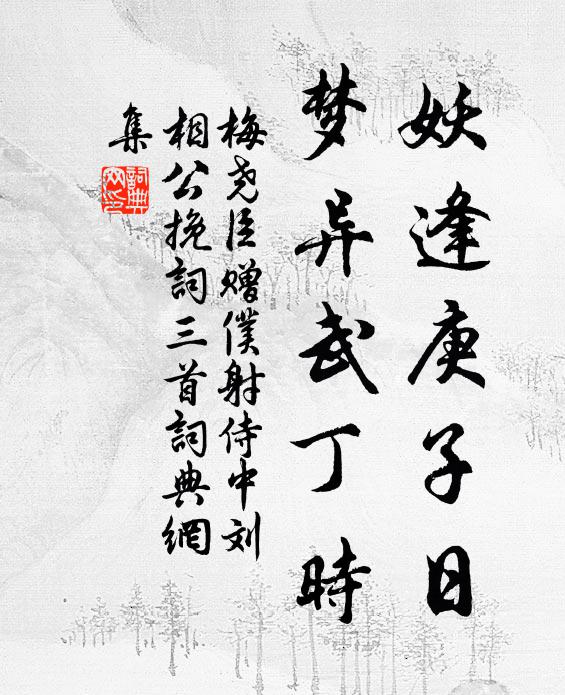 妖逢庚子日
梦异武丁時
梅尧臣赠僕射侍中刘
相公挽詞三首詞典網
集
詞典網印